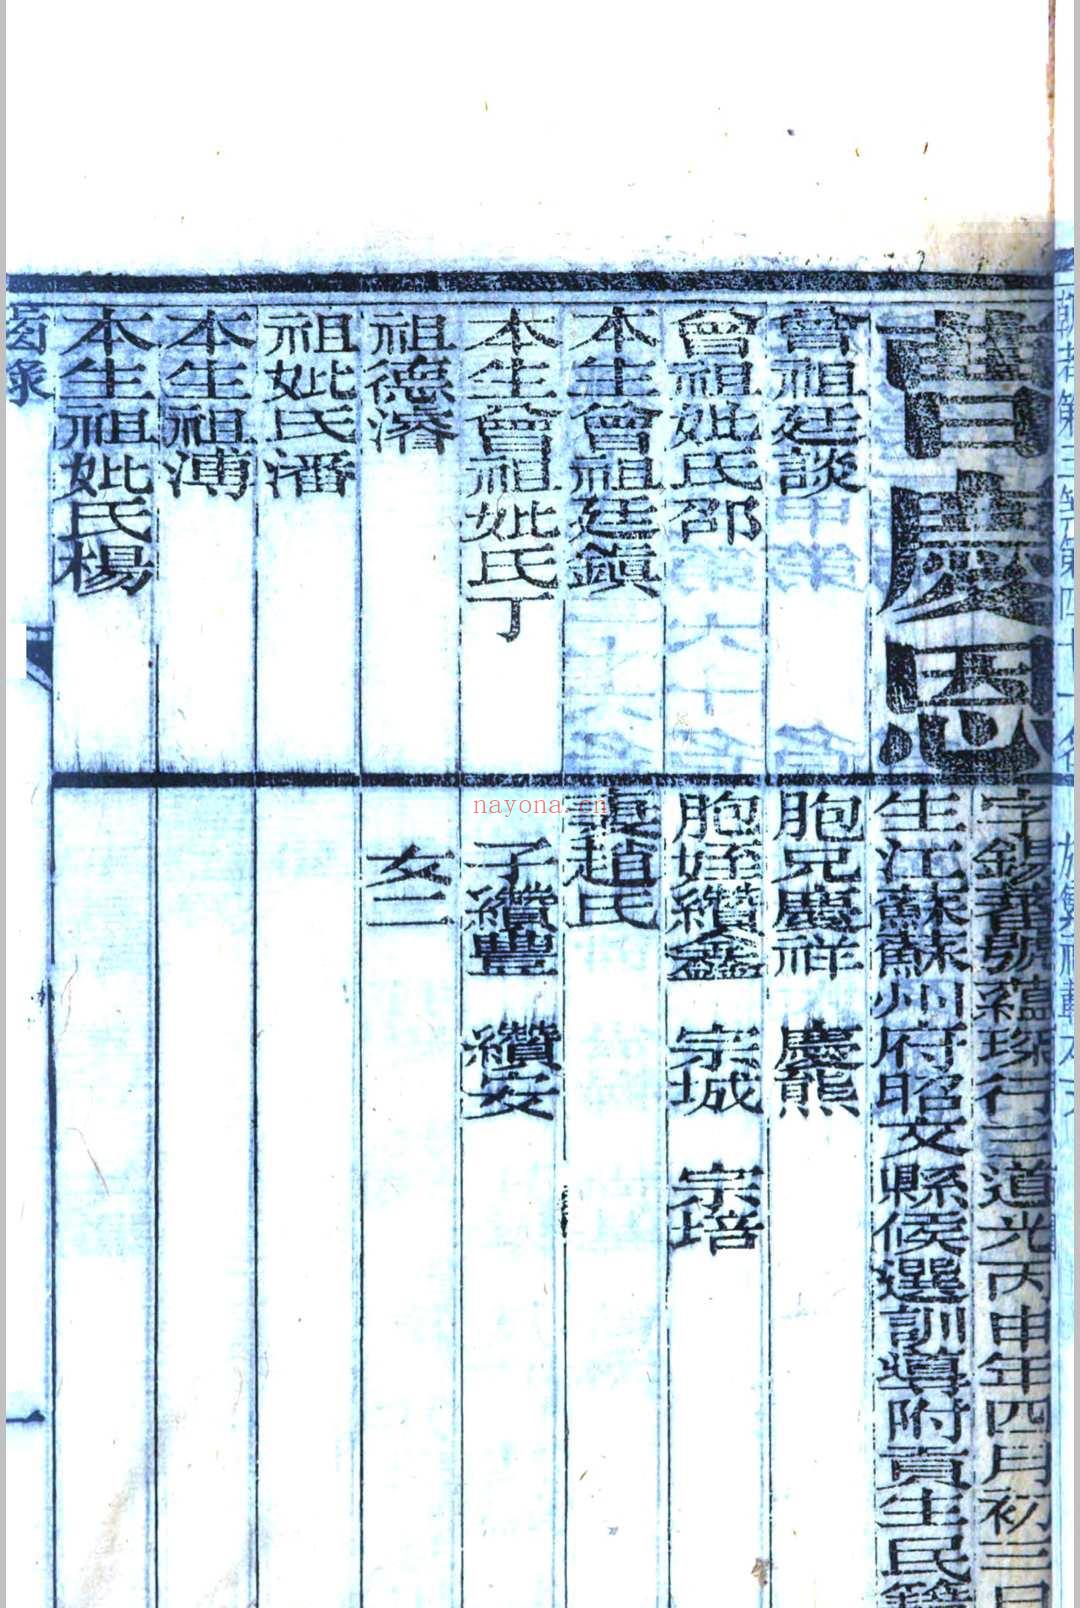 曹慶恩
字錫蕃號蘊琛行三道光丙申年四月初三日
生江蘇蘇州府昭文縣候選訓導附貢生民籍
曾祖廷談
曾祖妣氏邵
本生曾祖廷鎮
本生曾祖妣氏丁
祖德濬
祖妣氏潘
本生祖溥
本生祖妣氏楊
胞兄慶祥 慶熊
胞姪纘鑫 宗城 宗培
妻趙氏
子纘豐 纘安
女二
齒錄
一
nayona.cn